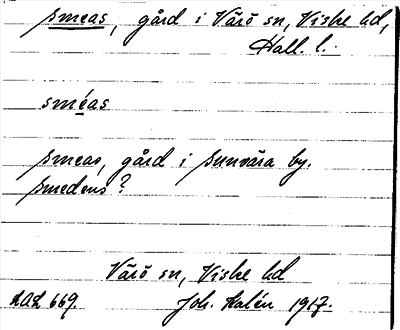 smeas, gård i Värö sn, Viske hd,
Hall. l.
sméas
smeas, gård i sunvära by.
smedens?
Värö sn, Viske hd
Joh. Kalén 1917.